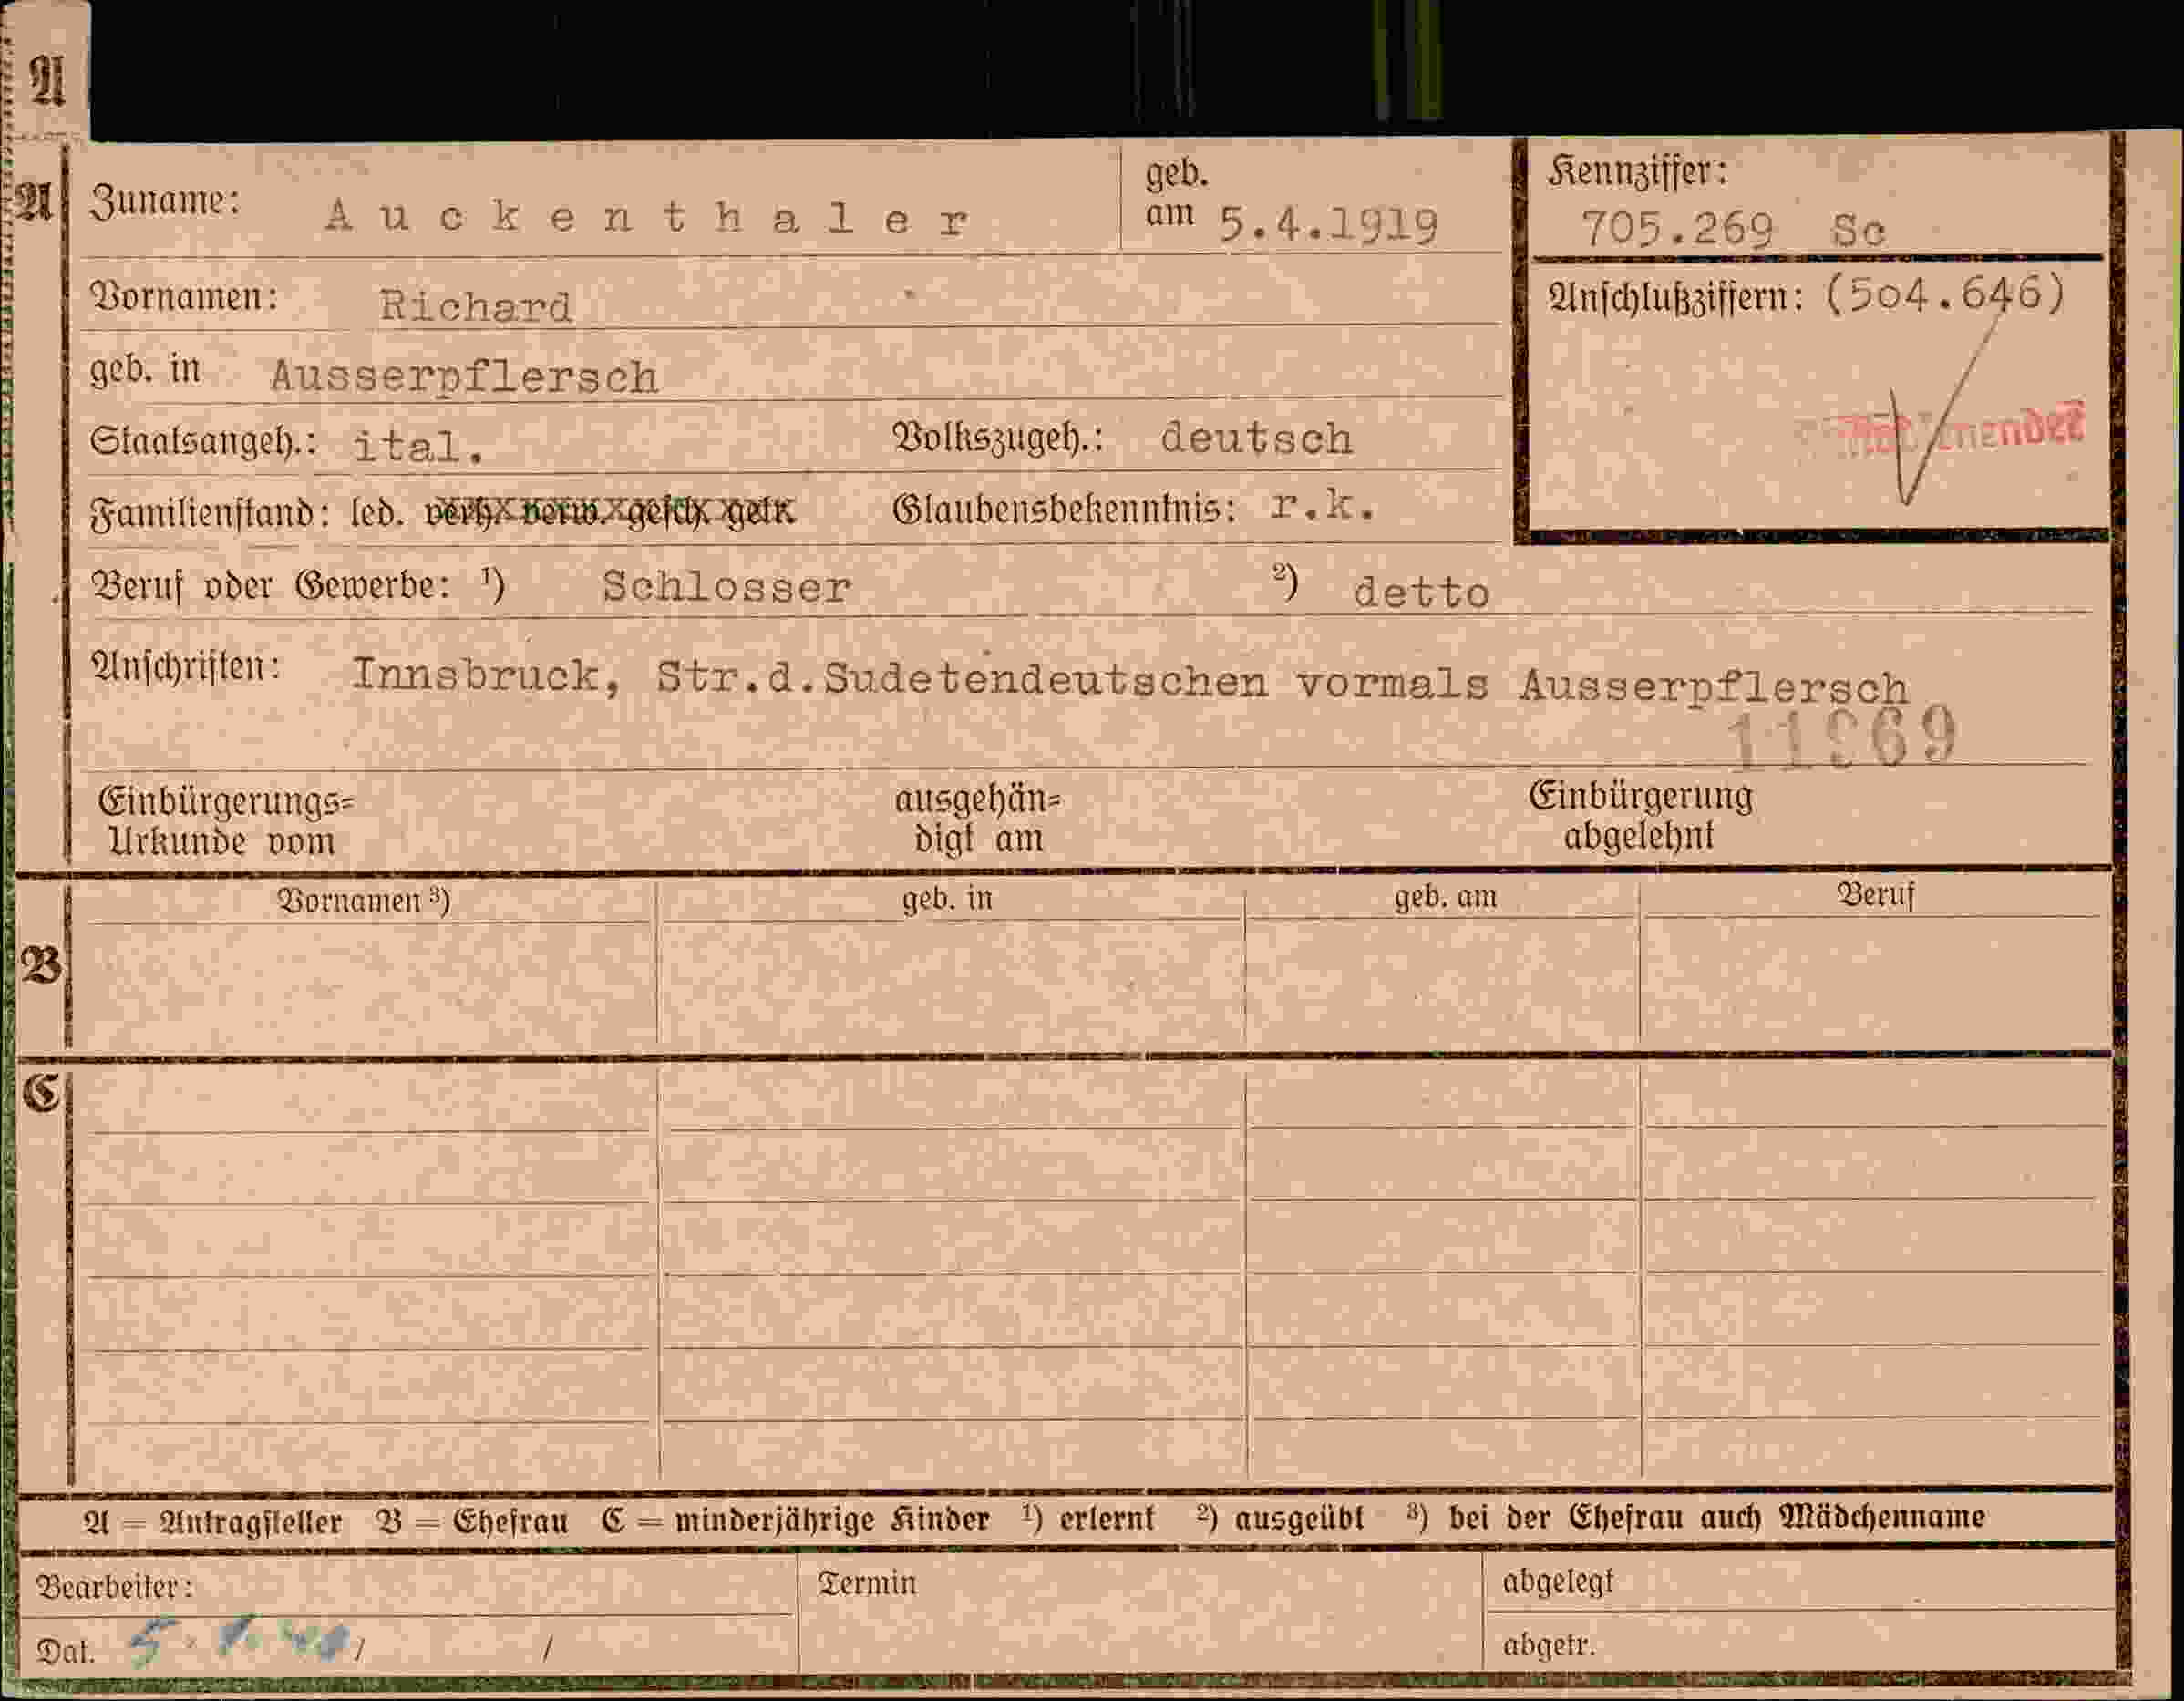 A
A Zuname: Auckenthaler geb. am 5.4.1919
Kennziffer: 705.269 Sc
Vornamen: Richard
Anschlußziffern: (504.646)
geb. in Ausserpflersch
Staatsangeh.: ital. Volkszugeh.: deutsch
Familienstand: led. verh. verw. gesch. getr. Glaubensbekenntnis: r.k.
Beruf oder Gewerbe: ¹) Schlosser ²) detto
Anschriften: Innsbruck, Str.d.Sudetendeutschen vormals Ausserpflersch
Einbürgerungs=
Urkunde vom
ausgehän=
digt am
Einbürgerung
abgelehnt
B Vornamen ³) geb. in geb. am Beruf
C
A = Antragsteller B = Ehefrau C = minderjährige Kinder ¹) erlernt ²) ausgeübt ³) bei der Ehefrau auch Mädchenname
Bearbeiter: Termin abgelegt
Dat. / / abgetr.